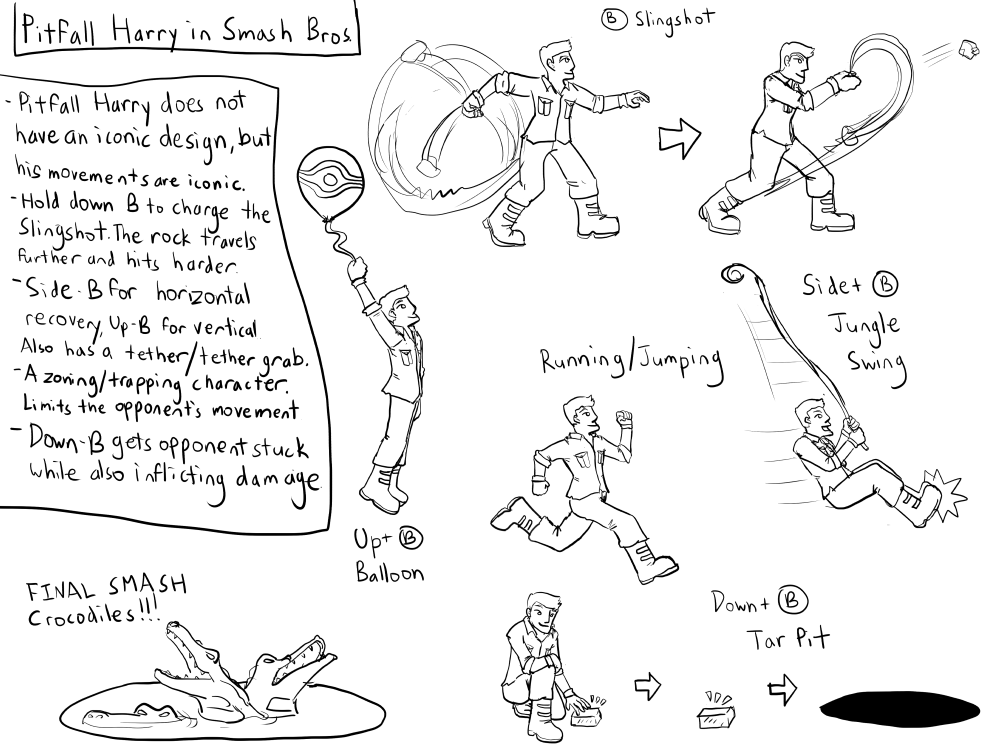 Pitfall Harry in Smash Bros.
- Pitfall Harry does not
have an iconic design, but
his movements are iconic.
- Hold down B to charge the
Slingshot. The rock travels
further and hits harder.
- Side-B for horizontal
recovery, Up-B for vertical.
Also has a tether/tether grab.
- A zoning/trapping character.
Limits the opponent's movement
- Down-B gets opponent stuck
while also inflicting damage
B Slingshot
Side+ B
Jungle
Swing
Running/Jumping
Up+ B
Balloon
FINAL SMASH
Crocodiles!!!
Down+ B
Tar Pit